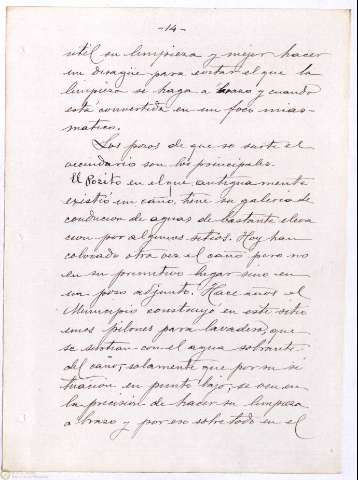 -14-
util su limpieza y mejor hacer
un disagüe para evitar el que la
limpieza se haga a brazo y cuando
está convertida en un foco mias-
matico.
Los pozos de que se surte el
vecindario son los principales.
El Pozito en el que antiguamente
existió un caño, tiene su galeria de
conducion de aguas de bastante eleva
cion por algunos sitios. Hoy han
colocado otra vez el caño pero no
en su primitivo lugar sino en
un pozo adjunto. Hace años el
Municipio construyó en este sitio
unos pilones para lavadero, que
se surtian con el agua sobrante
del caño, solamente que por su si
tuacion en punto bajo, se ven en
la precision de hacer su limpieza
a brazo y por eso sobre todo en el